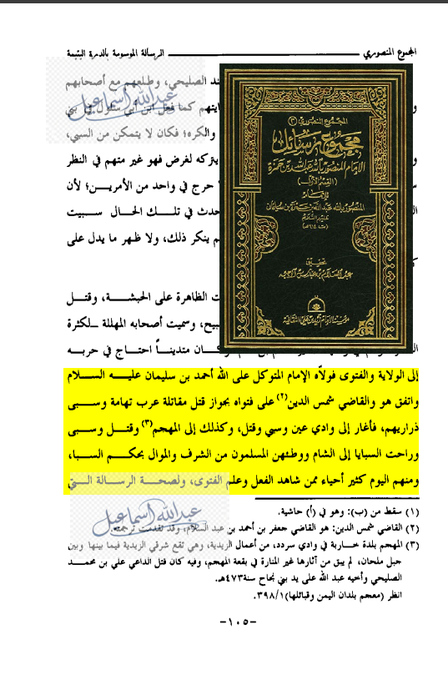 المجموع المنصوري
الرسالة الموسومة بالدرة اليتيمة
ند الصليحي، وطلعهم مع أصحابهم
والكره؛ فكان لا يتمكن من السبي،
يتركه لغرض فهو غير متهم في النظر
حرج في واحد من الأمرين؛ لأن
حدث في تلك الحال سبيت
م ينكر ذلك، ولا ظهر ما يدل على
ت الظاهرة على الحبشة، وقتل
بيح، وسميت أصحابه المهللة لكثرة
كان متديناً احتاج في حربه
إلى الولاية والفتوى فولاّه الإمام المتوكل على الله أحمد بن سليمان عليه السلام
واتفق هو والقاضي شمس الدين(٢) على فتواه بجواز قتل مقاتلة عرب تهامة وسبي
ذراريهم، فأغار إلى وادي عين وسبي وقتل، وكذلك إلى المهجم(٣) وقتل وسبى
وراحت السبايا إلى الشام ووطئهن المسلمون من الشرف والموال بحكم السبا،
ومنهم اليوم كثير أحياء ممن شاهد الفعل وعلم الفتوى، ولصحة الرسالة التي
(١) سقط من (ب): وهو في (أ) حاشية.
(٢) القاضي شمس الدين: هو القاضي جعفر بن أحمد بن عبد السلام، وقد تقدمت ترجمته.
(٣) المهجم بلدة خاربة في وادي سردد، من أعمال الزيدية، وهي تقع شرقي الزيدية فيما بينها وبين
جبل ملحان، لم يبق من آثارها غير المنارة في بقعة المهجم، وفيه كان قتل الداعي علي بن محمد
الصليحي وأخيه عبد الله على يد بني نجاح سنة٤٧٣هـ.
انظر (معجم بلدان اليمن وقبائلها)٣٩٨/١.
-١٠٥-
المجموع المنصوري
مجموع رسائل
الإمام المنصور بالله عبد الله بن حمزة
عبد الله إسماعيل
عبد الله إسماعيل